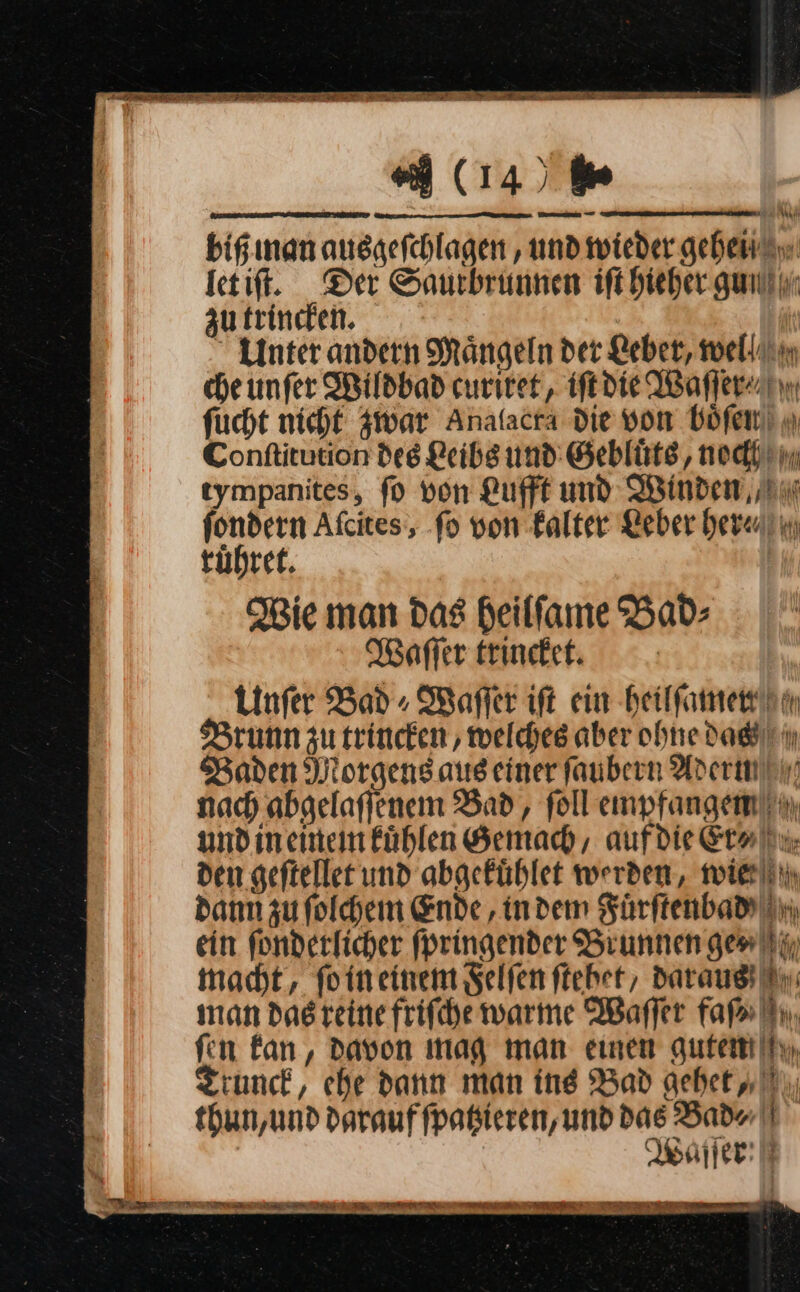 (14)
biß man ausgeſchlagen, und wieder geheil⸗
let iſt. Der Saurbrunnen iſt hieher gut
zu trincken.
Unter andern Maͤngeln der Leber, wel⸗
che unſer Wildbad curiret, iſt die Waſſer⸗
ſucht nicht zwar Anaſacra die von boͤſen
Conſtitution des Leibs und Gebluͤts, noch
tympanites, ſo von Lufft und Winden,
ſondern Aſcites, ſo von kalter Leber her⸗
ruͤhret.
Wie man das heilſame Bad⸗
Waſſer trincket.
Unſer Bad⸗Waſſer iſt ein heilſamer
Brunn zu trincken, welches aber ohne das
Baden Morgens aus einer ſaubern Adern
nach abgelaſſenem Bad, ſoll empfangen
und in einem kuͤhlen Gemach, auf die Er⸗
den geſtellet und abgekuͤhlet werden, wie
dann zu ſolchem Ende, in dem Fuͤrſtenbad
ein ſonderlicher ſpringender Brunnen ge⸗
macht, ſo in einem Felſen ſtehet, daraus
man das reine friſche warme Waſſer faſ⸗
ſen kan, davon mag man einen guten
Trunck, ehe dann man ins Bad gehet,
thun, und darauf ſpatzieren, und das Bad⸗
Waſſer